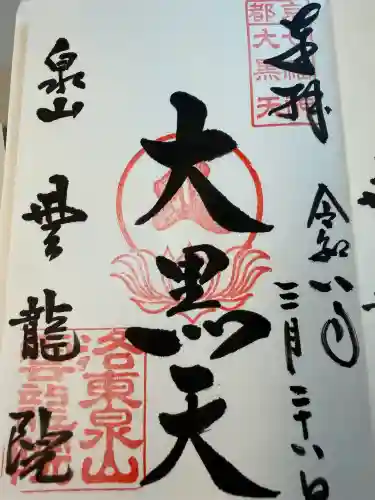 奉拝
令和八年三月二十八日
京都
七福神
大黒天
大黒天
泉山
雲龍院
洛東泉山
雲龍院